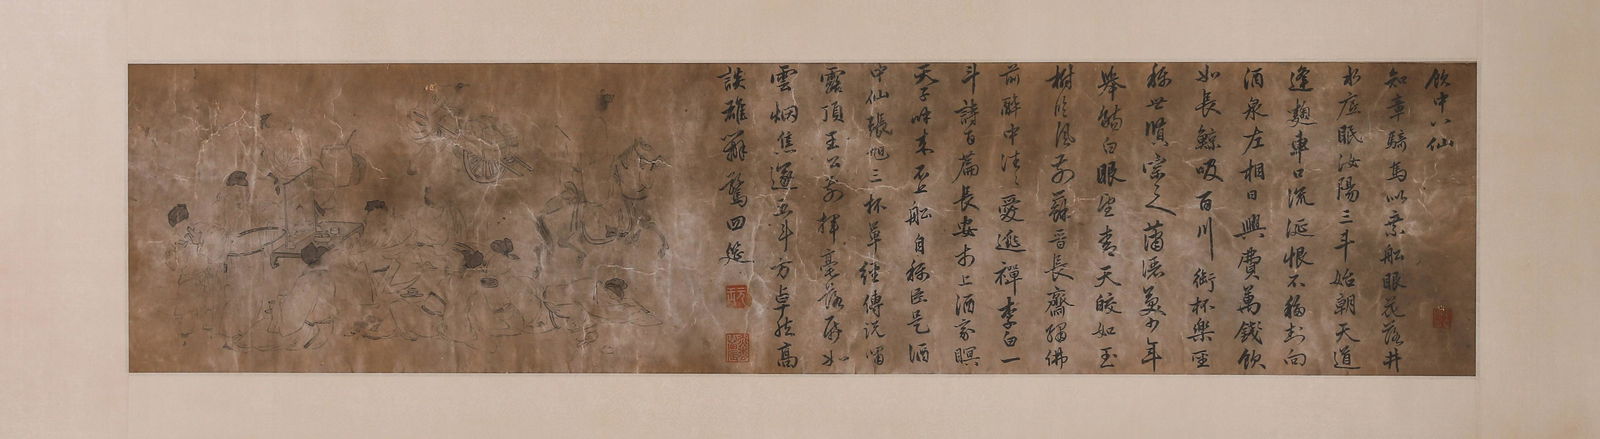 飲中八仙
知章騎馬似乘船眼花落井
水底眠汝陽三斗始朝天道
逢麴車口流涎恨不移封向
酒泉左相日興費萬錢飲
如長鯨吸百川銜杯樂聖
稱世賢宗之蕭洒美少年
舉觴白眼望青天皎如玉
樹臨風前蘇晉長齋繡佛
前醉中往々愛逃禪李白一
斗詩百篇長安市上酒家眠
天子呼來不上船自稱臣是酒
中仙張旭三杯草聖傳脫帽
露頂王公前揮毫落紙如
雲烟焦遂五斗方卓然高
談雄辯驚四筵